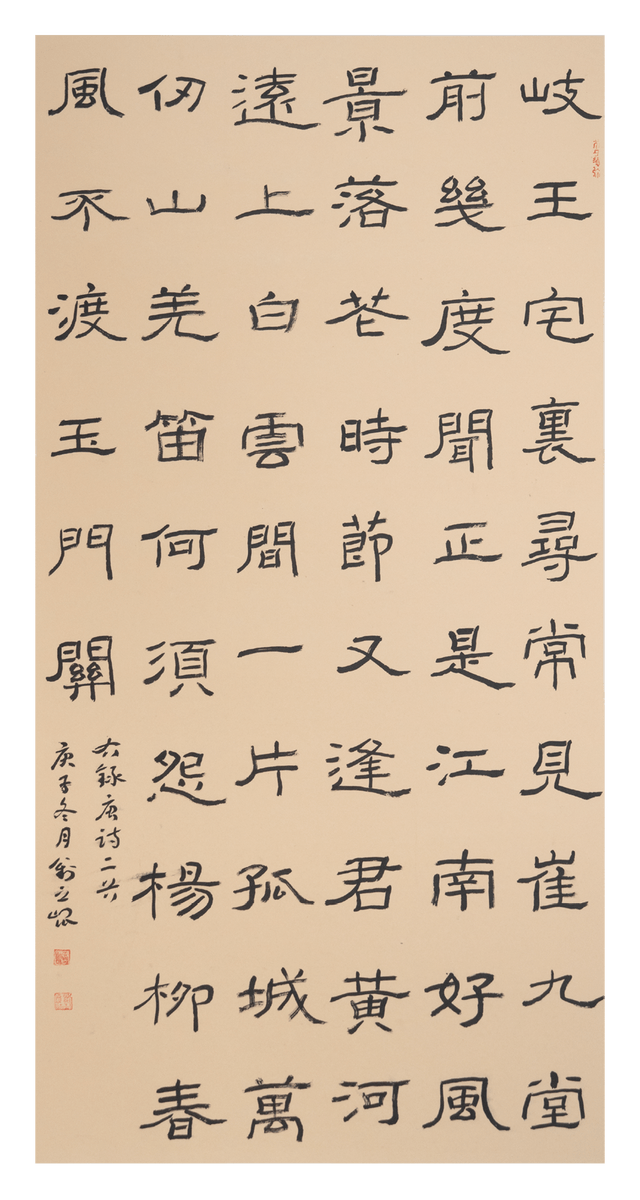 岐王宅裏尋常見崔九堂
前幾度聞正是江南好風
景落花時節又逢君黄河
遠上白雲間一片孤城萬
仞山羌笛何須怨楊柳春
風不渡玉門關
右録唐詩二首
庚子冬月